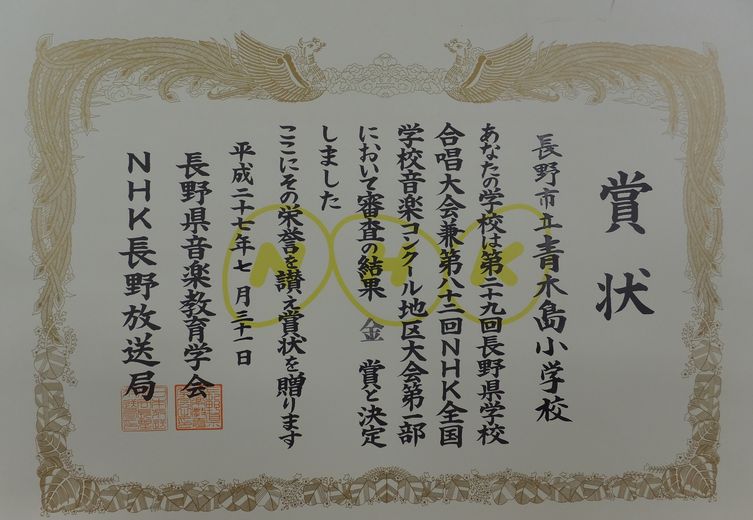 賞状
長野市立青木島小学校
あなたの学校は第二十九回長野県学校
合唱大会兼第八十二回NHK全国
学校音楽コンクール地区大会第一部
において審査の結果 金 賞と決定
しました
ここにその栄誉を讃え賞状を贈ります
平成二十七年七月三十一日
長野県音楽教育学会
NHK長野放送局
NHK